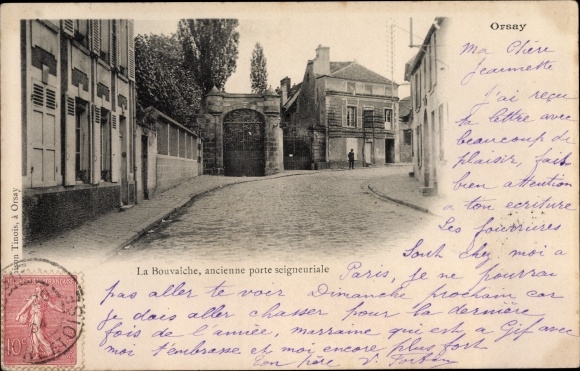 Orsay
Ma Chère
Jeannette
J'ai reçu
ta lettre avec
beaucoup de
plaisir, fait
bien attention
a ton ecriture
Les fourrures
Sont chez moi a
Paris, je ne pourrai
pas aller te voir Dimanche prochain car
je dois aller chasser pour la dernière
fois de l'année, marraine qui est a Gif avec
moi t'embrasse et moi encore plus fort
Ton père V.
La Bouvaiche, ancienne porte seigneuriale
Tinois, à Orsay
10